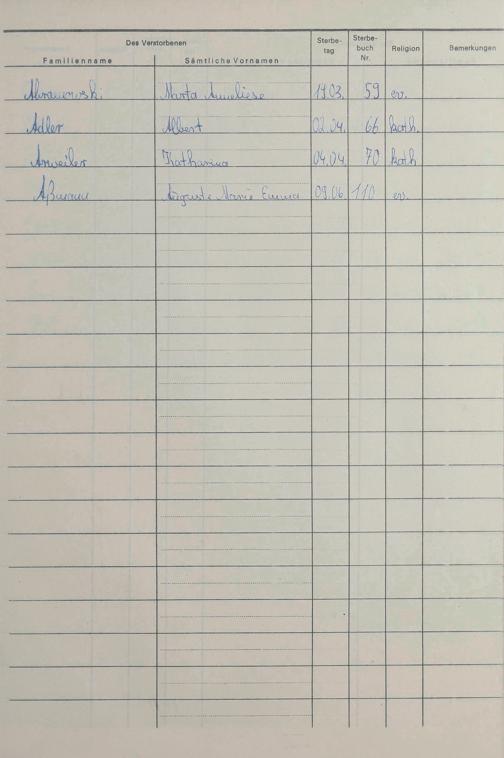 Des Verstorbenen
Familienname Sämtliche Vornamen Sterbe-tag Sterbe-buch Nr. Religion Bemerkungen
Abramowski Marta Anneliese 19.03. 59 ev.
Adler Albert 02.04. 66 kath.
Anweiler Katharina 04.04. 70 kath
Aßmann Auguste Marie Emma 09.06. 110 ev.